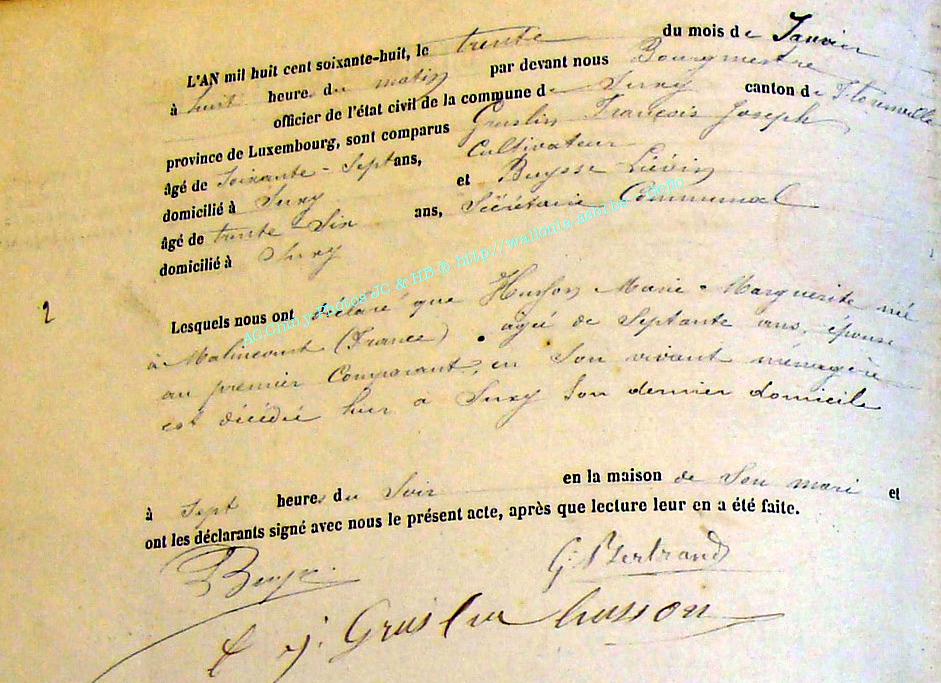 L'AN mil huit cent soixante-huit, le trente du mois de Janvier
à huit heures du matin par devant nous Bourgmestre
officier de l'état civil de la commune de Suxy canton de Florenville
province de Luxembourg, sont comparus Gruslin François Joseph
âgé de Soixante-Sept ans, Cultivateur
domicilié à Suxy et Buysse Liévin
âgé de trente-Six ans, Sécrétaire Communal
domicilié à Suxy
2
Lesquels nous ont déclaré que Husson Marie-Marguerite née
à Malincourt (France) agée de Septante ans, épouse
au premier Comparant, en Son vivant ménagère
est décédée hier a Suxy Son dernier domicile
à Sept heures du Soir en la maison de Son mari et
ont les déclarants signé avec nous le présent acte, après que lecture leur en a été faite.
G. Bertrand
Buysse
f j. Gruslin husson
AC Chiny Photos JC & HB @ http://wallonia.asbl.be